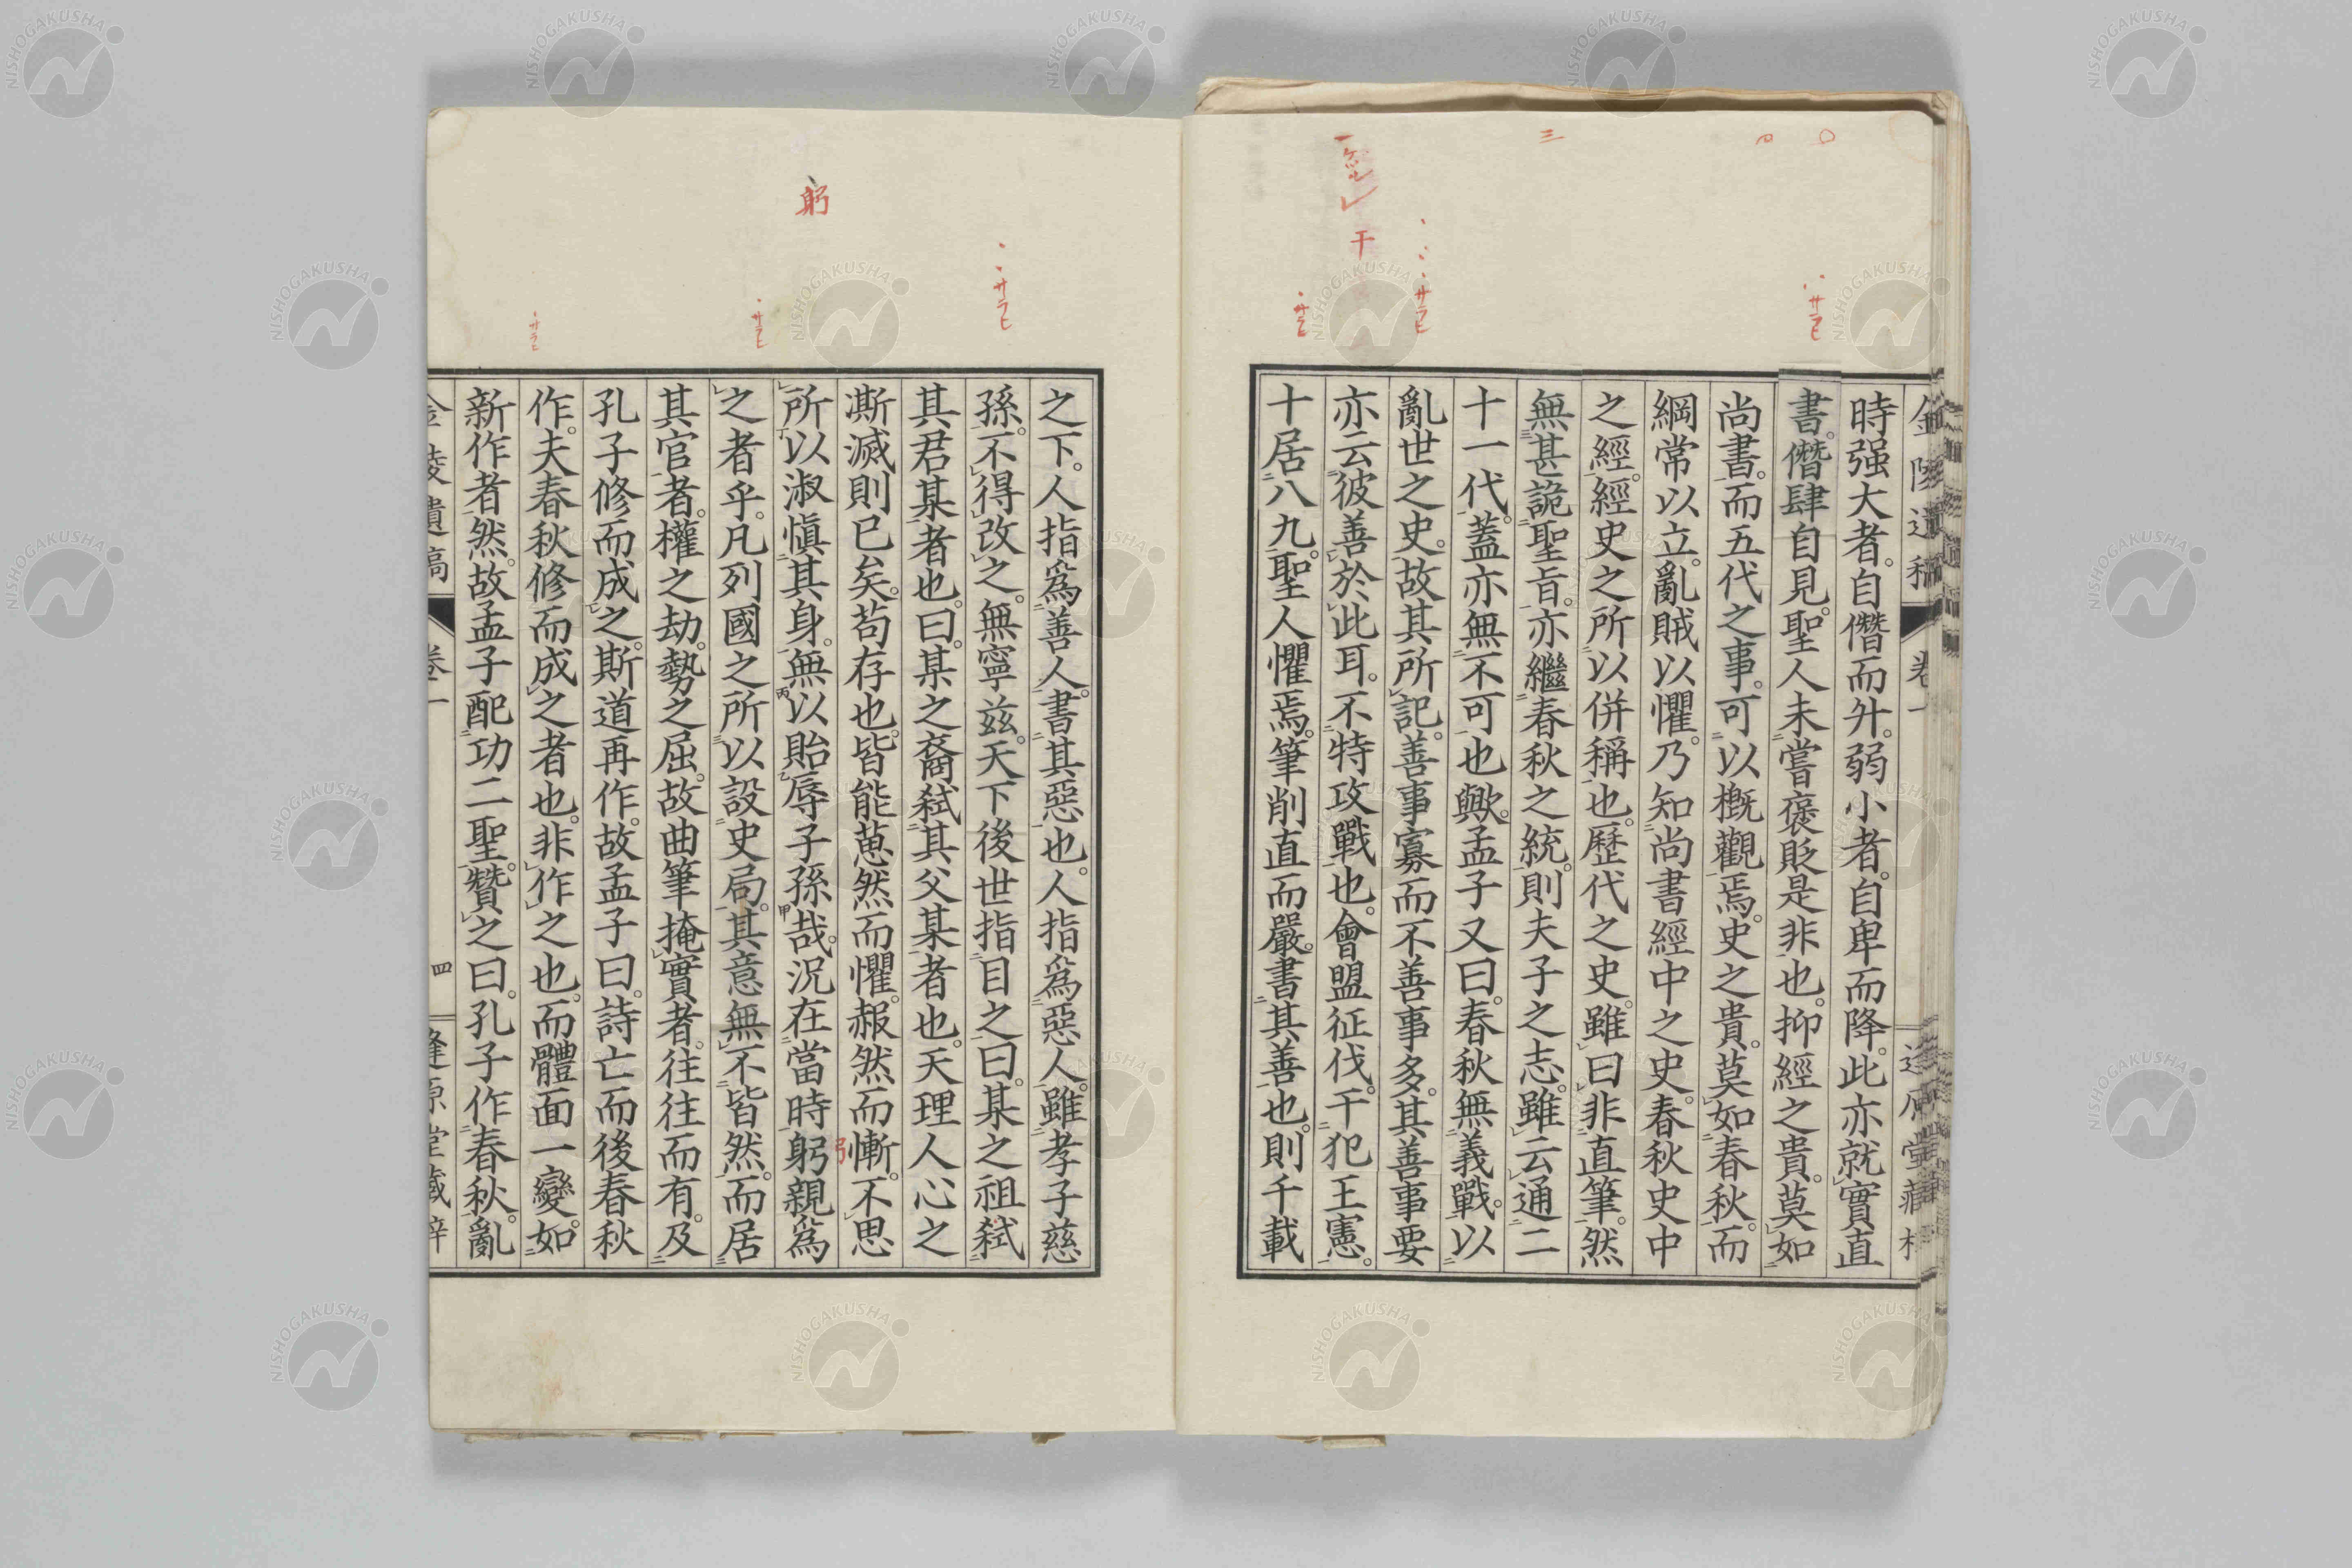 時强大者。自僭而升。弱小者。自卑而降。此亦就實直
書。僭肆自見。聖人未嘗褒貶是非也。抑經之貴。莫如
尚書。而五代之事。可以概觀焉。史之貴。莫如春秋。而
綱常以立。亂賊以懼。乃知尚書經中之史。春秋史中
之經。經史之所以併稱也。歷代之史。雖曰非直筆。然
無甚詭聖旨。亦繼春秋之統。則夫子之志。雖云通二
十一代。蓋亦無不可也歟。孟子又曰。春秋無義戰。以
亂世之史。故其所記。善事寡而不善事多。其善事要
亦云彼善於此耳。不特攻戰也。會盟征伐。干犯王憲。
十居八九。聖人懼焉。筆削直而嚴。書其善也。則千載
之下。人指爲善人。書其惡也。人指爲惡人。雖孝子慈
孫。不得改之。無寧茲。天下後世指目之曰。某之祖弑
其君某者也。曰。某之裔弑其父某者也。天理人心之
澌滅則已矣。苟存也。皆能葸然而懼。赧然而慚。不思
所以淑愼其身。無以貽辱子孫哉。況在當時躬親爲
之者乎。凡列國之所以設史局。其意無不皆然。而居
其官者。權之劫。勢之屈。故曲筆掩實者。往往而有。及
孔子修而成之。斯道再作。故孟子曰。詩亡而後春秋
作。夫春秋修而成之者也。非作之也。而體面一變。如
新作者然。故孟子配功二聖。贊之曰。孔子作春秋。亂
卷一
四
躬
干